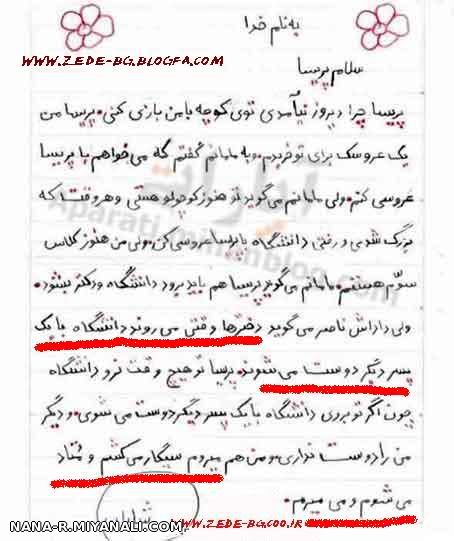 به نام خدا
WWW.ZEDE-BG.BLOGFA.COM
سلام پریسا
پریسا چرا دیروز نیآمدی توی کوچه با من بازی کنی. پریسا من
یک عروسک برای تو خریدم. و به مامانم گفتم که می خواهم با پریسا
عروسی کنم. ولی مامانم می گوید تو هنوز کوچولو هستی و هر وقت که
بزرگ شدی و رفتی دانشگاه با پریسا عروسی کن. ولی من هنوز کلاس
سوّم هستم. مامانم می گوید پریسا هم باید برود دانشگاه و دکتر بشود.
ولی داداش ناصر می گوید دخترها وقتی می روند دانشگاه با یک
پسر دیگر دوست می شوند. پریسا تو هیچ وقت نرو دانشگاه
چون اگر تو بروی دانشگاه با یک پسر دیگر دوست می شوی. و دیگر
من را دوست نداری. و من هم میروم سیگار می کشم و مُتاد
می شوم و می میرم.
WWW.ZEDE-BG.COO.IR
NANA-R.MIYANALI.COM